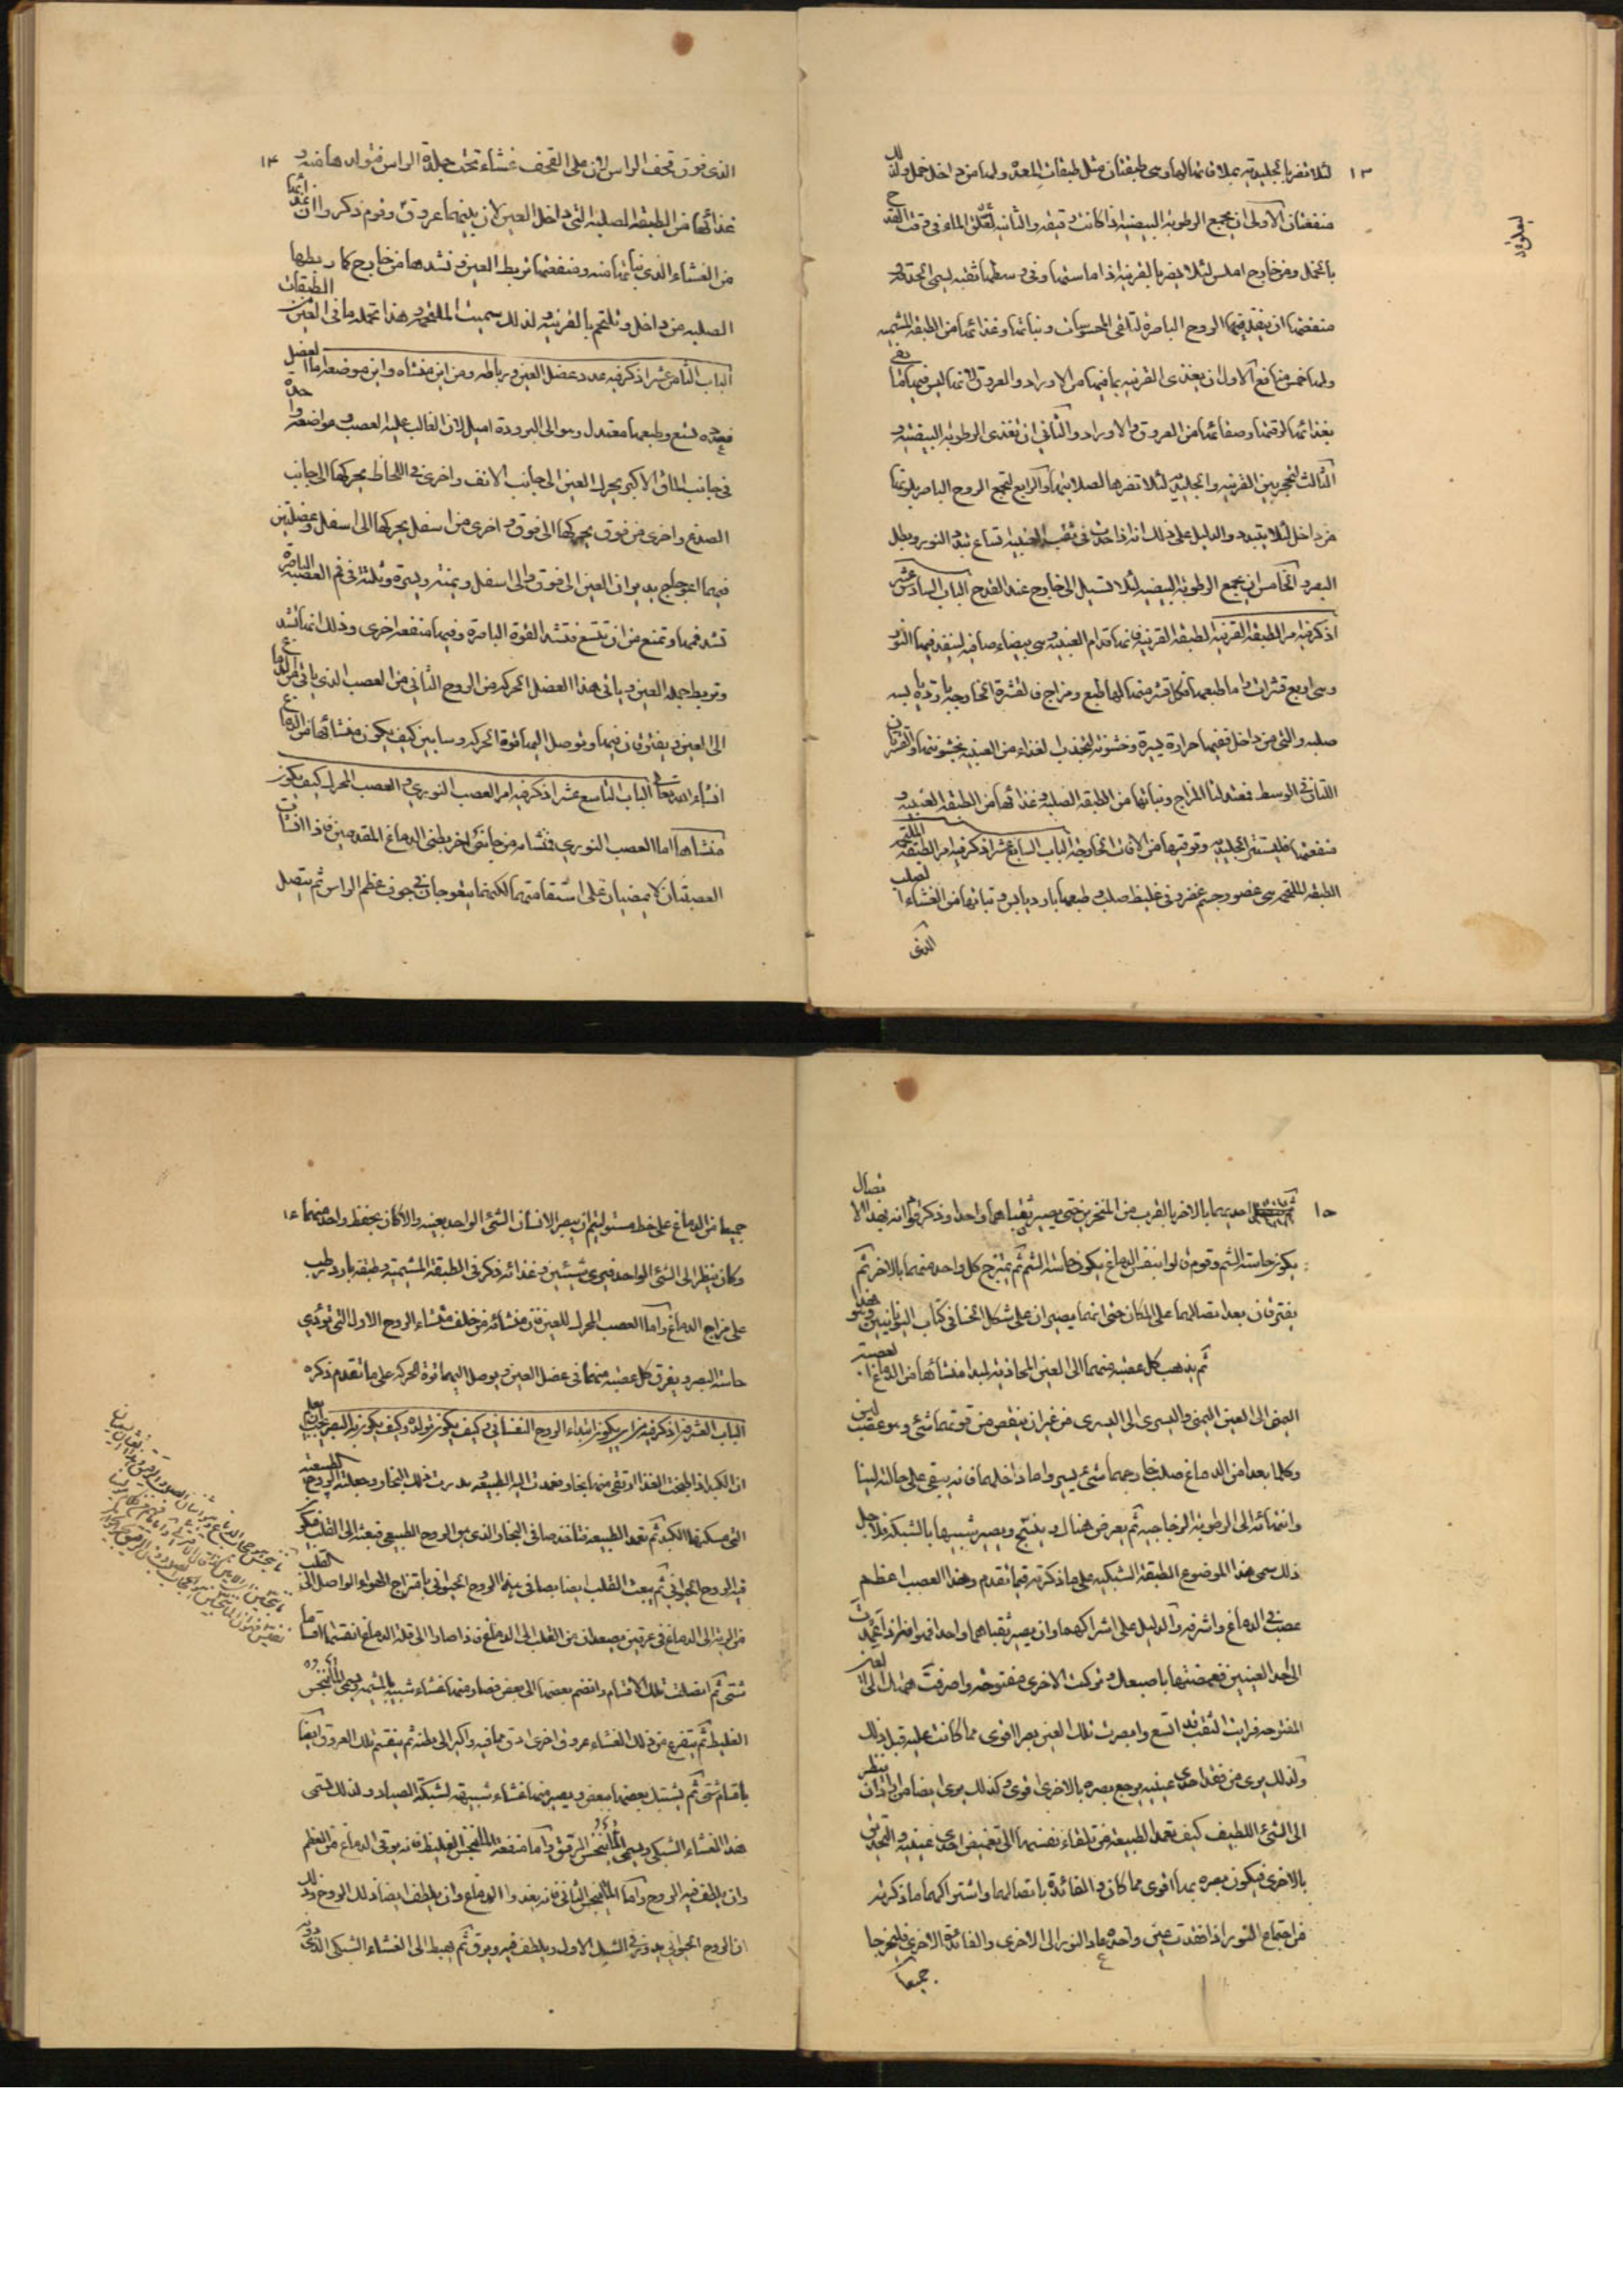 ١٣
لئلا تضر بالجليدية بملاقاتها لها وهى طبقتان مثل طبقات المعدة ولها من داخل خمل ولذلك
منفعتان الاولى ان يجمع الرطوبة البيضية اذا كانت رقيقة والثانية لتعلق الماء فى وقت القدح
بالخمل ومن خارج املس لئلا يضر بالقرنية اذا ماستها وفى وسطها ثقبة ليسمى الحدقة و
منفعتها ان ينفذ فيها الروح الباصرة لتلقى المحسوسات ونباتها وغذائها من الطبقة المشيمية
ولها خمس منافع الاول ان يغذى القرنية بما فيها من الاوراد والعروق لانها ليس فيها ما يفى
بغذائها لرقتها وصفائها من العروق والاوراد والثانى ان تغذى الرطوبة البيضية و
الثالث لتحجز بين القرنية والجليدية لئلا تضرها لصلابتها والرابع لتجمع الروح الباصر بلونها
من داخل لئلا يتبدد والدليل على ذلك انه اذا حدث فى ثقب العنبية اتساع تبدد النور وبطل
البصر والخامس ان يجمع الرطوبة البيضية لئلا تسيل الى خارج عند القدح الباب السادس عشر
اذكر فيه امر الطبقة القرنية الطبقة القرنية فانها قدام العنبية وهى بيضاء صافية لينفذ فيها النور
وهى اربع قشرات واما طبعها فكل قشرة منها لها طبع ومزاج فالقشرة الخارجة باردة يابسة
صلبة والتى من داخل ففيها حرارة يسيرة وخشونة لتجذب الغذاء من العنبية بخشونتها والقشرتان
اللتان فى الوسط فمعتدلتا المزاج ونباتها من الطبقة الصلبة وغذائها من الطبقة العنبية و
منفعتها فليستتر الجليدية وتوقيها من الافات الخارجة الباب السابع عشر اذكر فيه امر الطبقة الملتحمة
الطبقة الملتحمة هى عضو وجسم غضروفى غليظ صلب طبعها بارد يابس ونباتها من الغشاء الصلب
الذى
١٤
الذى فوق قحف الراس لان على القحف غشاء تحت جلدة الراس فتولدها منه و
غذائها من الطبقة الصلبة التى داخل العين لان بينهما عروق وقوم ذكروا ان غذائها
من الغشاء الذى نباتها منه ومنفعتها تربط العين وتشدها من خارج كما ربطها
الصلبة من داخل وتلتحم بالقرنية ولذلك سميت الملتحمة وهذا تجملة ما فى العين من الطبقات
الباب الثامن عشر اذكر فيه عدد عضل العين ورباطه ومن اين منشاه واين موضعه اما العضل
فعدده تسع وطبعها معتدل وهو الى البرودة اميل لان الغالب عليه العصب ومواضعه واحدة
فى جانب الماق الاكبر يحرك العين الى جانب الانف واخرى فى اللحاظ يحركها الى جانب
الصدغ واخرى من فوق يحركها الى فوق واخرى من اسفل يحركها الى اسفل وعضلتين
فيهما اعوجاج يديران العين الى فوق والى اسفل ويمنة ويسرة وثلثة فى فم العصبة الباصرة
تشد فمها وتمنع من ان تتسع فتشد القوة الباصرة وفيها منفعة اخرى وذلك انها تشد
وتربط جملة العين وياتى هذا العضل الحركة من الزوج الثانى من العصب الذى ياتى من الدماغ
الى العين ويفترقان فيها ويوصل اليها قوة الحركة وسابين كيف يكون منشائها من الدماغ
انشاء الله تعالى الباب التاسع عشر اذكر فيه امر العصب النورى والعصب المحرك كيف يكون
منشاها اما العصب النورى فمنشاه من جانبى اخر بطنى الدماغ المقدمين فاذا انشات
العصبتان لا يمضيان على استقامتهما لكنهما يتعوجان فى جوف عظم الراس ثم يتصل
١٥
احديهما بالاخر بالقرب من المنخرين حتى يصير ثقباهما واحدا وذكر قوم انه بهذا الاتصال
يكون حاسة الشم وقوم قالوا بنفس الدماغ يكون حاسة الشم ثم يمتزج كل واحد منهما بالاخر ثم
يفترقان بعد اتصالهما على المكان حتى انهما يصيران على شكل الخا فى كتاب اليونانيين وهو هذا
ثم يذهب كل عصبة منهما الى العين المحاذية لمبدا منشائها من الدماغ العصبة
اليمنى الى العين اليمنى واليسرى الى اليسرى من غير ان ينقص من قوتهما شئ وهو عصب لين
وكلما بعدا من الدماغ صلب خارجهما شئ يسير واما داخلهما فانه يبقى على حالته لينا
وانتهائه الى الرطوبة الزجاجية ثم يعرض هناك وينتج ويصير شبيها بالشبكة فلاجل
ذلك سمى هذا الموضوع الطبقة الشبكية على ما ذكرته فيما تقدم وهذا العصب اعظم
عصب فى الدماغ واشرفه والدليل على اشراكهما وان يصير ثقباهما واحدا فهو اظهر اذا عمدت
الى احد العينين فغمضتها باصبعك وتركت الاخرى مفتوحة واصرفت همتك الى العين
المفتوحة فرايت الثقب قد اتسع وابصرت تلك العين بصرا اقوى مما كانت عليه قبل ذلك
ولذلك يرى من فقد احدى عينيه يرجع بصره بالاخرى اقوى وكذلك يرى ايضا من اراد ان ينظر
الى الشئ اللطيف كيف تعمد الطبيعة من تلقاء نفسها الى تغميض احدى عينيه والتحديق
بالاخرى فيكون بصره بها اقوى مما كان والفائدة باتصالهما واشتراكهما ما ذكرته
من اجتماع النور اذا فقدت عين واحدة عاد النور الى الاخرى والفائدة الاخرى فليخرجا
جميعا
١٦
جميعا من الدماغ على خط مستو ليتم ان يبصر الانسان الشئ الواحد بعينه والا كان يحفظ واحد منهما
وكان ينظر الى الشئ الواحد فيرى شيئين وغذائه ذكر فى الطبقة المشيمية وطبعه بارد رطب
على مزاج الدماغ واما العصب المحرك للعين فان منشائه من خلف منشاء الزوج الاول التى تؤدى
حاسة البصر ويفرق كل عصبة منهما فى عضل العين ويوصل اليها قوة الحركة على ما تقدم ذكره
الباب العشرون اذكر فيه من اين يكون ابتداء الروح النفسانى وكيف يكون تولده وكيف يكون به البصر يجب ان يعلم
ان الكبد اذا طبخت الغذا ارتقى منها بخار فعمدت اليه الطبيعة و دبرت ذلك البخار وجعلته الروح الطبيعية
التى مسكنها الكبد ثم تعمد الطبيعة فتاخذ صافى البخار الذى هو الروح الطبيعى فتبعثه الى القلب فيكون
فيه الروح الحيوانى ثم يبعث القلب ايضا بصافى هذا الروح الحيوانى بامتزاج الهواء الواصل الى القلب
من الرية الى الدماغ فى عرقين يصعدان من القلب الى الدماغ فاذا صارا الى قلة الدماغ انقسما اقساما
شتى ثم اتصلت تلك الاقسام وانضم بعضها الى بعض فصار منها غشاء شبيه بالمشيمة ويسمى الماننجس
الغليظ ثم يتفرع من ذلك الغشاء عروق اخرى ادق مما فيه واكبر الى بطنه ثم ينقسم تلك العروق ايضا
باقسام شتى ثم يشتبك بعضها ببعض ويصير منها غشاء شبيه لشبكة الصياد ولذلك تسمى
هذا الغشاء الشبكى ويسمى الماننجس الرقيق واما منفعة الماننجس الغليظ فانه يوقى الدماغ من العظم
وان يلطف فيه الروح واما الماننجس الثانى فانه يغذوا الدماغ وان يلطف ايضا ذلك الروح وذلك
ان الروح الحيوانى يدور فى الشبك الاول ويلطف فيه ويرق ثم يهبط الى الغشاء الشبكى الذى